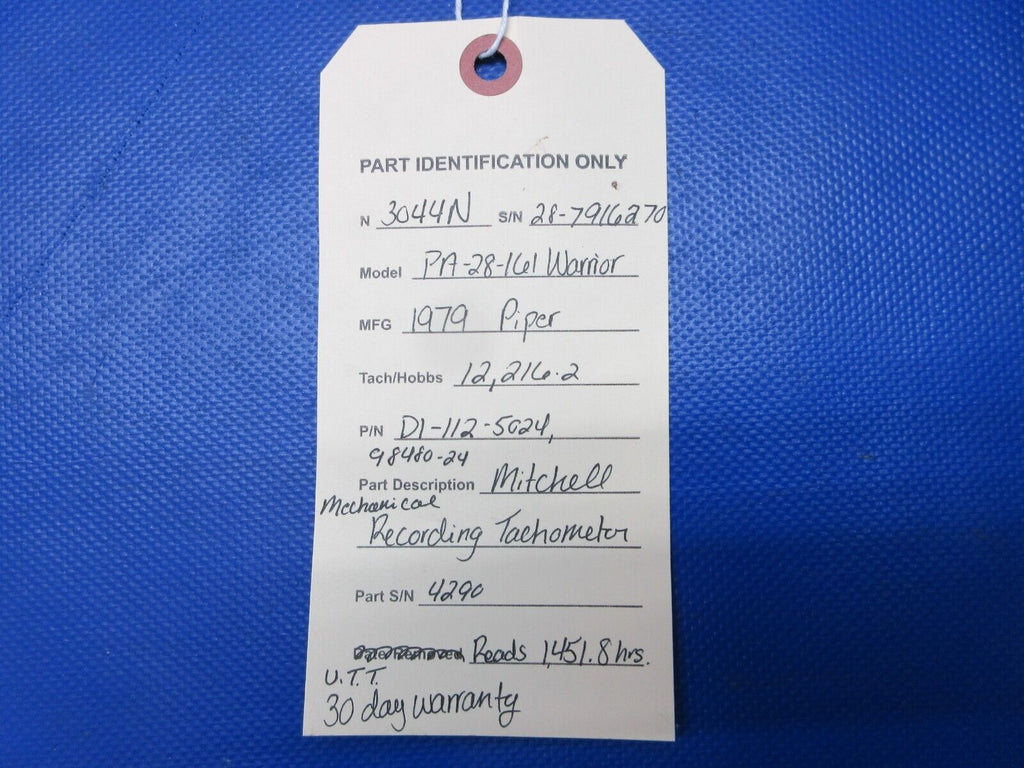 PART IDENTIFICATION ONLY
N 3044N S/N 28-7916270
Model PA-28-161 Warrior
MFG 1979 Piper
Tach/Hobbs 12,216.2
P/N D1-112-5024,
98480-24
Part Description Mitchell
Mechanical
Recording Tachometer
Part S/N 4290
Date Removed Reads 1,451.8 hrs.
U.T.T.
30 day warranty